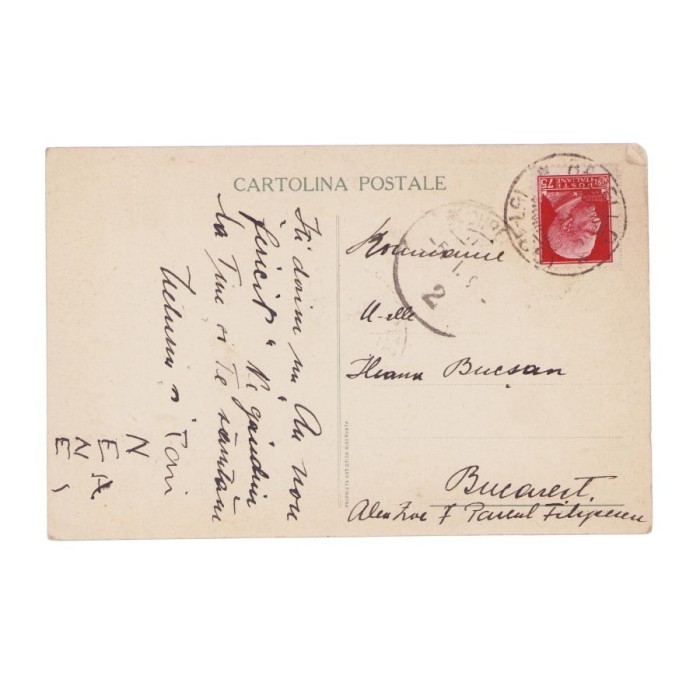 CARTOLINA POSTALE
Îți dorim un "An nou
fericit". Ne gândim
la Tine și Te sărutăm
și
N
E A
E N
Roumanie
M-elle
Ileana Bucșan
Bucarest.
7 Parcul Filipescu
POSTE
ITALIANE
75
2
PROPRIETÀ ARTISTICA RISERVATA